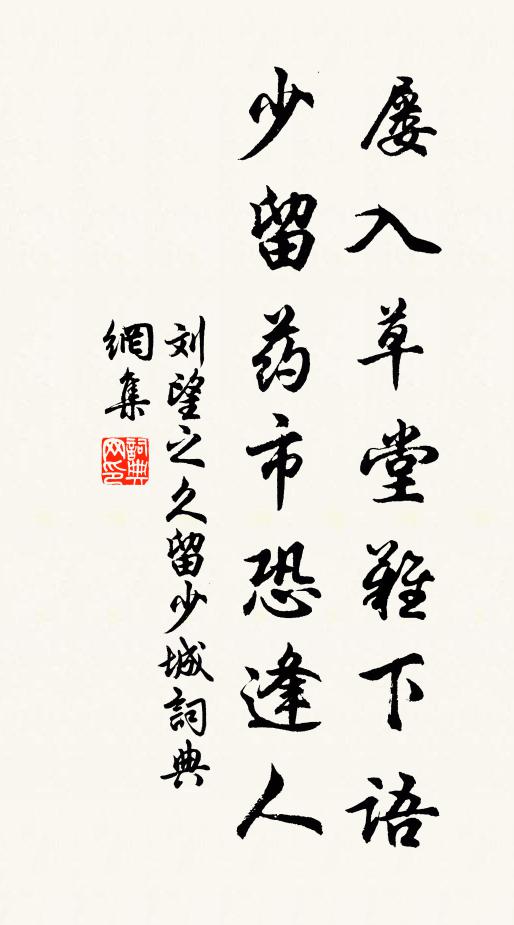 屡入草堂難下语
少留药市恐逢人
刘望之久留少城詞典
網集
詞典网印